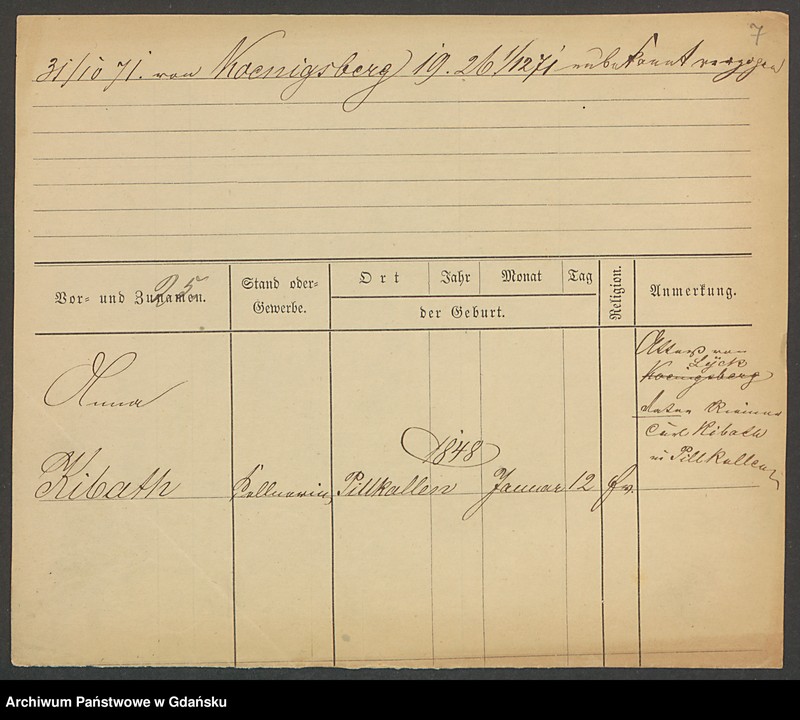 7
31/10 71. von Koenigsberg 19. 26 1/12 71 unbekannt verzogen
25
Vor- und Zunamen.
Stand oder Gewerbe.
Ort
Jahr
Monat
Tag
der Geburt.
Religion.
Anmerkung.
Anna
Kibath
Kellnerin
Pillkallen
1848
Januar
12
Ev.
Attest von
Lyck
Koenigsberg
Vater
Carl Kibath
in Pillkallen
Archiwum Państwowe w Gdańsku